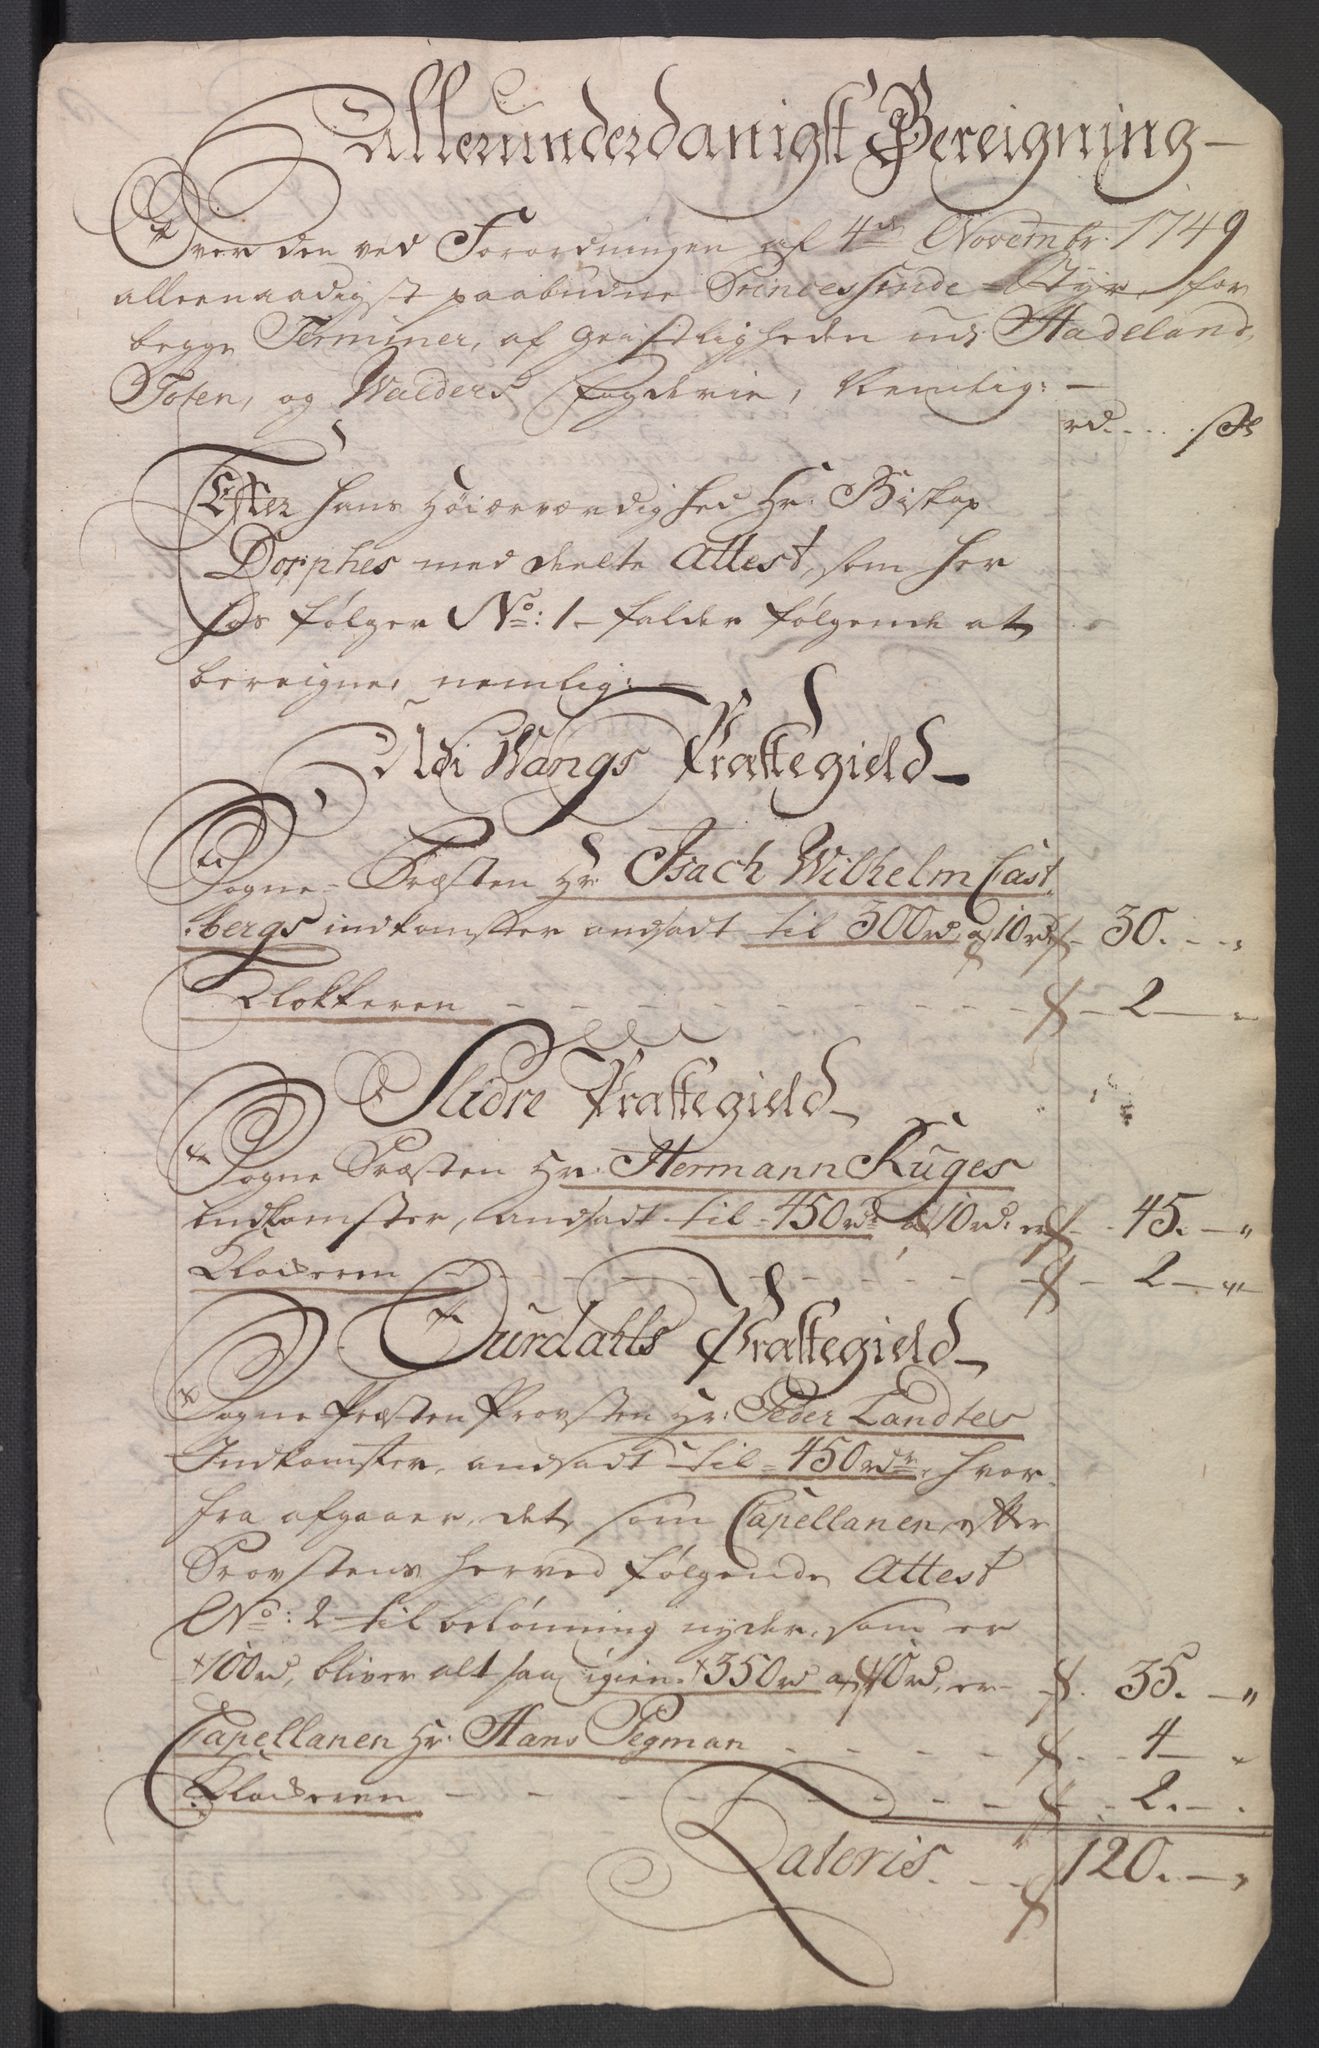 Allerunderdanigst Bereigning
Over den ved Forordningen af 4de Novembr: 1749
allernaadigst paabudne Princessinde Styr, for
begge Terminer, af Geistligheden udi Hadeland,
Toten, og Walders Fogderie, Nemlig: —
rd. . . . . s
Efter hans Høiærværdighed Hr: Biskop
Dorphes meddeelte Attest, som her
hos følger No: 1 – falder følgende at
bereigne, nemlig: —
Udi Wangs Præstegield –
Sogne-Præsten Hr: Isach Wilhelm Cast-
bergs indkomster andsadt til 300 rd, a 10 rd – 30. – „
Klokkeren – – – – – – – – – 2 — „
Slidre Præstegield –
Sogne Præsten Hr: Hermann Ruges
indkomster, andsadt til 450 rd: a 10 rd: er – 45. – „
Klockeren – – – – – – – – – 2 — „
Ourdahls Præstegield –
Sogne Præsten Provsten Hr: Peder Landtes
Indkomster, andsadt til 450 rdr, hvor-
fra afgaaer, det som Capellanen, efter
Provstens herved følgende Attest
No: 2 til belønning nyder, som er
100 rd, bliver altsaa igien 350 rd a 10 rd, er – 35. – „
Capellanen Hr: Hans Pegman – – – – – 4 — „
Klockeren – – – – – – – – – 2. – .
Lateris. – – 120. – „